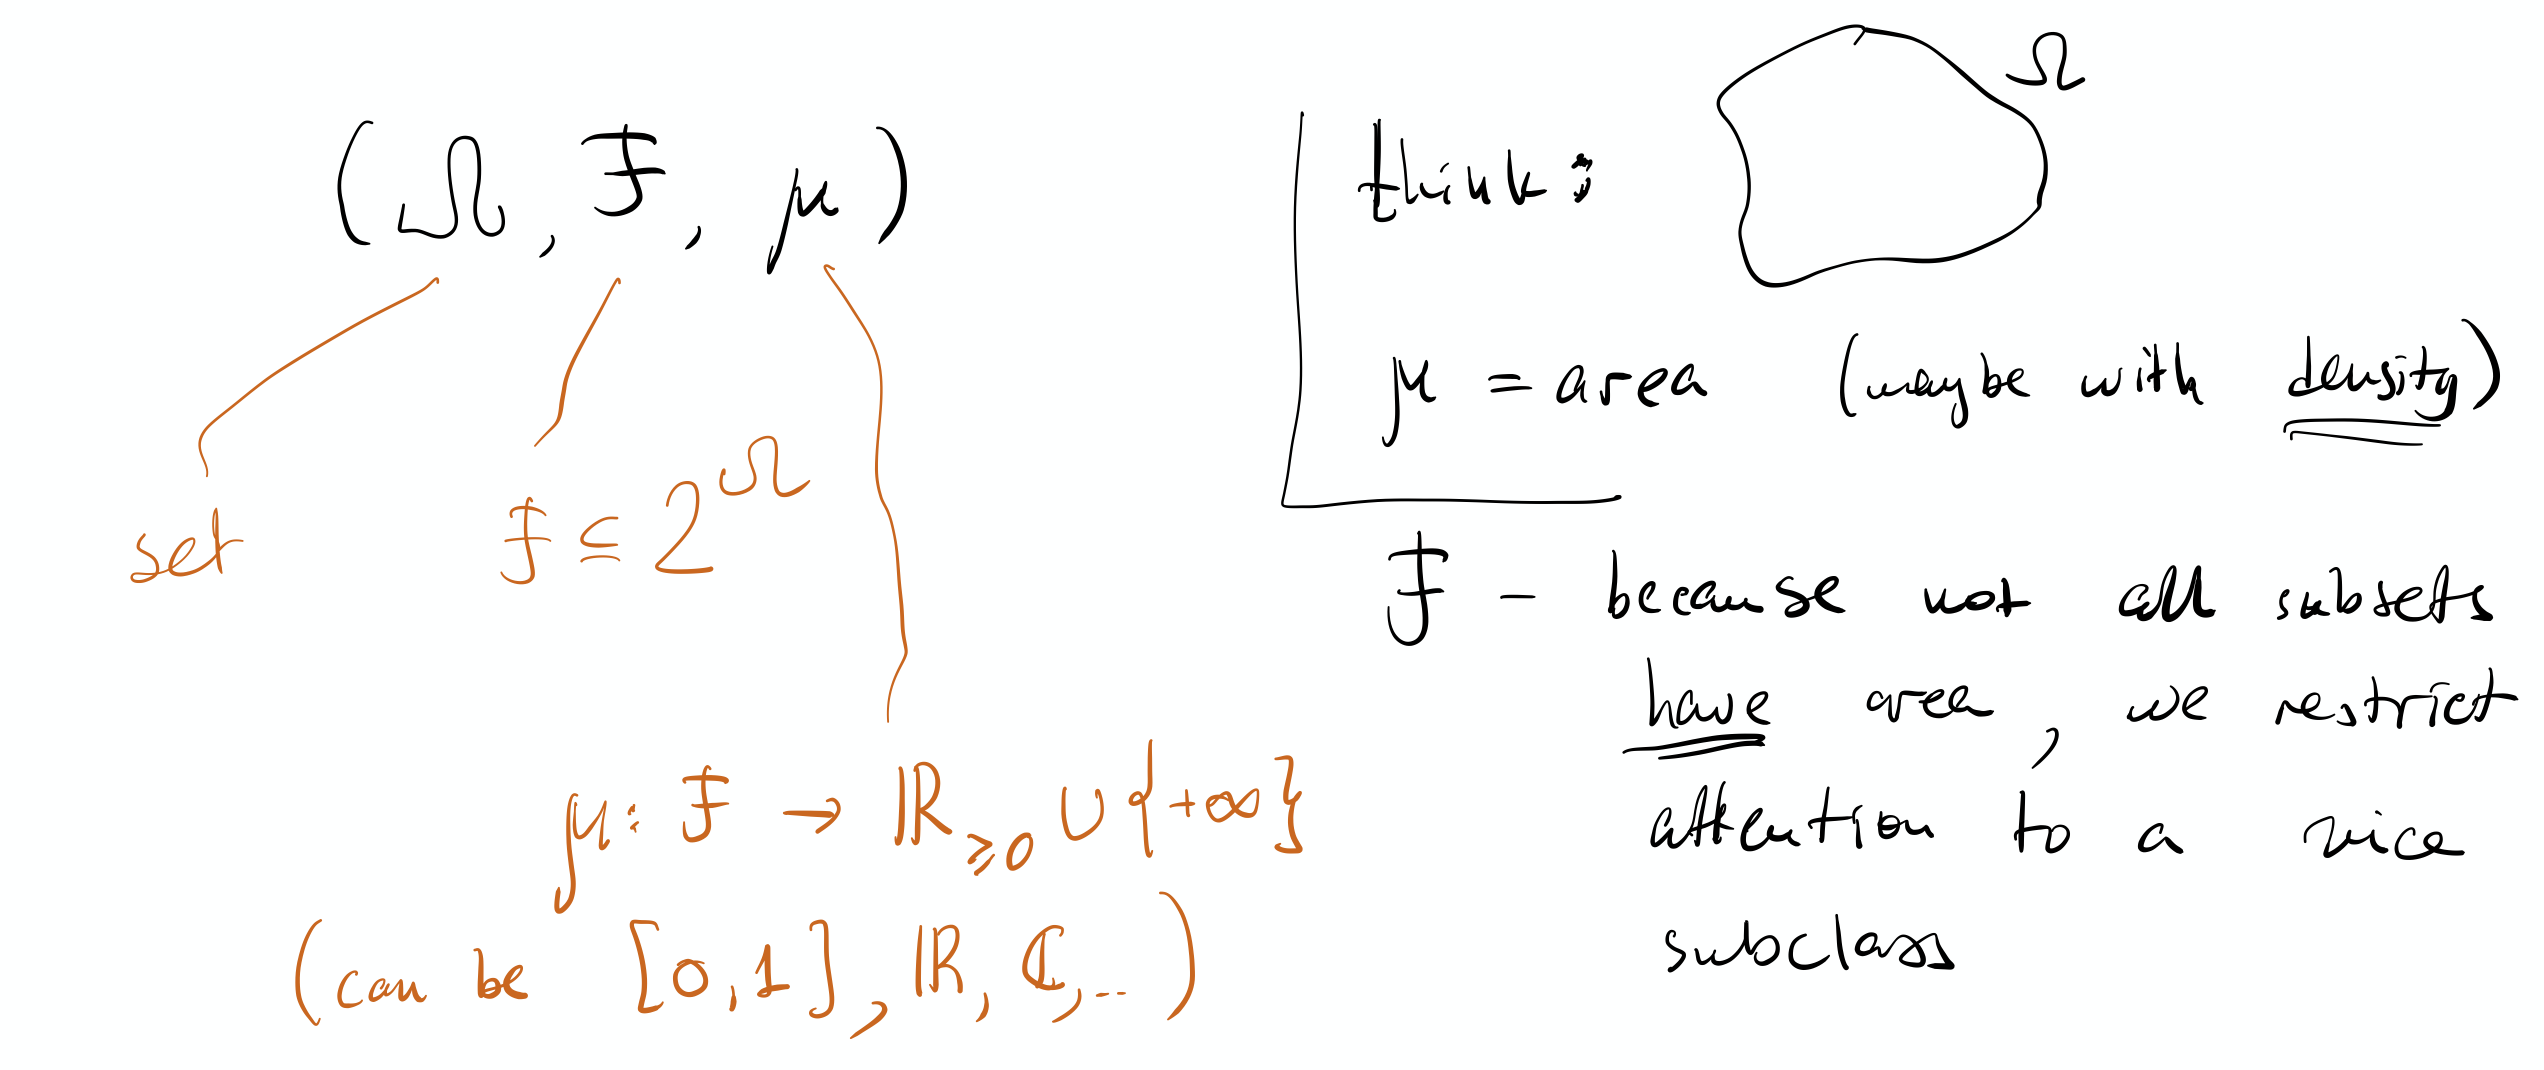 (Ω, F, μ)
set
F ⊆ 2^Ω
μ: F → ℝ_{⩾0} ∪ {+∞}
(can be [0,1], ℝ, ℂ,...)
think:
Ω
μ = area (maybe with density)
F - because not all subsets
have area, we restrict
attention to a nice
subclass